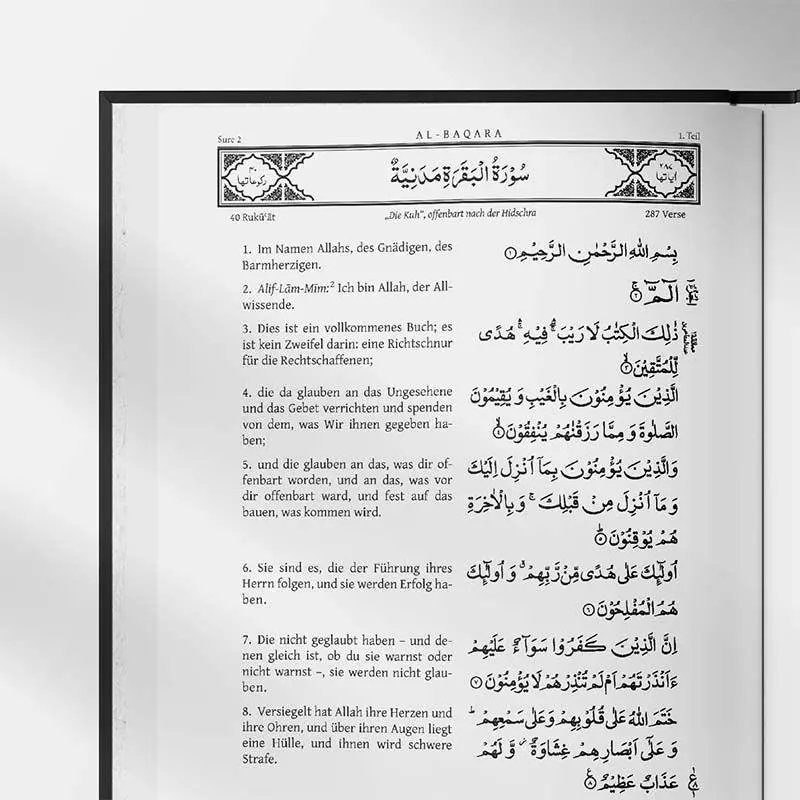 Sure 2
AL-BAQARA
1. Teil
٤٠
رکوعاتها
سُوْرَةُ الْبَقَرَةِ مَدَنِيَّةٌ
٢٨٧
اٰیاتها
40 Rukūʿāt
„Die Kuh“, offenbart nach der Hidschra
287 Verse
1. Im Namen Allahs, des Gnädigen, des
Barmherzigen.
2. Alif-Lām-Mīm:² Ich bin Allah, der All-
wissende.
3. Dies ist ein vollkommenes Buch; es
ist kein Zweifel darin: eine Richtschnur
für die Rechtschaffenen;
4. die da glauben an das Ungesehene
und das Gebet verrichten und spenden
von dem, was Wir ihnen gegeben ha-
ben;
5. und die glauben an das, was dir of-
fenbart worden, und an das, was vor
dir offenbart ward, und fest auf das
bauen, was kommen wird.
6. Sie sind es, die der Führung ihres
Herrn folgen, und sie werden Erfolg ha-
ben.
7. Die nicht geglaubt haben – und de-
nen gleich ist, ob du sie warnst oder
nicht warnst –, sie werden nicht glau-
ben.
8. Versiegelt hat Allah ihre Herzen und
ihre Ohren, und über ihren Augen liegt
eine Hülle, und ihnen wird schwere
Strafe.
بِسْمِ اللّٰهِ الرَّحْمٰنِ الرَّحِيْمِ ۝١
الٓمّٓ ۝٢
ذٰلِكَ الْكِتٰبُ لَا رَيْبَ ۛ فِيْهِ ۛ هُدًى
لِّلْمُتَّقِيْنَ ۝٣
الَّذِيْنَ يُؤْمِنُوْنَ بِالْغَيْبِ وَ يُقِيْمُوْنَ
الصَّلٰوةَ وَ مِمَّا رَزَقْنٰهُمْ يُنْفِقُوْنَ ۝٤
وَالَّذِيْنَ يُؤْمِنُوْنَ بِمَاۤ اُنْزِلَ اِلَيْكَ
وَ مَاۤ اُنْزِلَ مِنْ قَبْلِكَ ۚ وَ بِالْاٰخِرَةِ
هُمْ يُوْقِنُوْنَ ۝٥
اُولٰٓئِكَ عَلٰى هُدًى مِّنْ رَّبِّهِمْ ۗ وَ اُولٰٓئِكَ
هُمُ الْمُفْلِحُوْنَ ۝٦
اِنَّ الَّذِيْنَ كَفَرُوْا سَوَآءٌ عَلَيْهِمْ
ءَاَنْذَرْتَهُمْ اَمْ لَمْ تُنْذِرْهُمْ لَا يُؤْمِنُوْنَ ۝٧
خَتَمَ اللّٰهُ عَلٰى قُلُوْبِهِمْ وَ عَلٰى سَمْعِهِمْ ؕ
وَ عَلٰۤى اَبْصَارِهِمْ غِشَاوَةٌ ۫ وَّ لَهُمْ
عَذَابٌ عَظِيْمٌ ۝٨